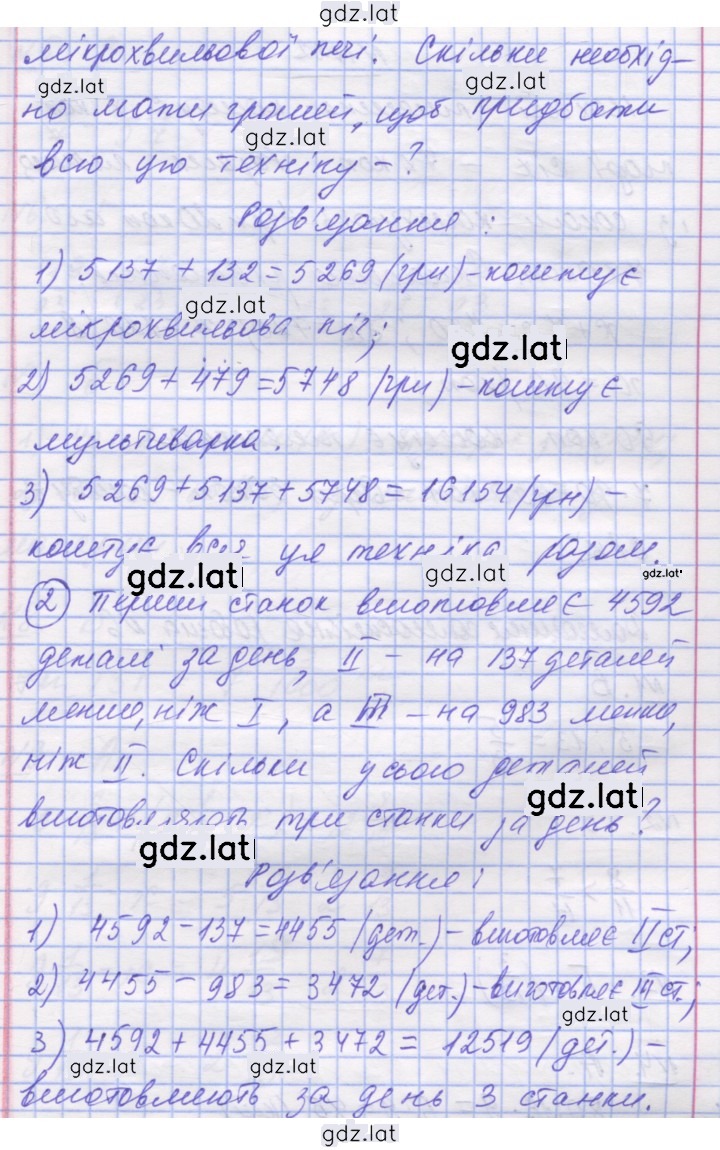 gdz.lat
мікрохвильової печі. Скільки необхід-
gdz.lat gdz.lat
но мати грошей, щоб придбати
gdz.lat
всю цю техніку - ?
gdz.lat
Розв'язання:
1) 5137 + 132 = 5269 (грн) - коштує
gdz.lat
мікрохвильова піч;
gdz.lat
2) 5269 + 479 = 5748 (грн) - коштує
мультиварка.
3) 5269 + 5137 + 5748 = 16154 (грн) -
коштує вся ця техніка разом.
gdz.lat gdz.lat gdz.lat
2 Перший станок виготовляє 4592
деталі за день, II - на 137 деталей
менше, ніж I, а III - на 983 менше,
ніж II. Скільки усього деталей
gdz.lat
виготовляють три станки за день?
gdz.lat
Розв'язання:
1) 4592 - 137 = 4455 (дет.) - виготовляє II ст;
gdz.lat
2) 4455 - 983 = 3472 (дет.) - виготовляє III ст.;
gdz.lat
3) 4592 + 4455 + 3472 = 12519 (дет.) -
gdz.lat gdz.lat
виготовляють за день 3 станки.
gdz.lat